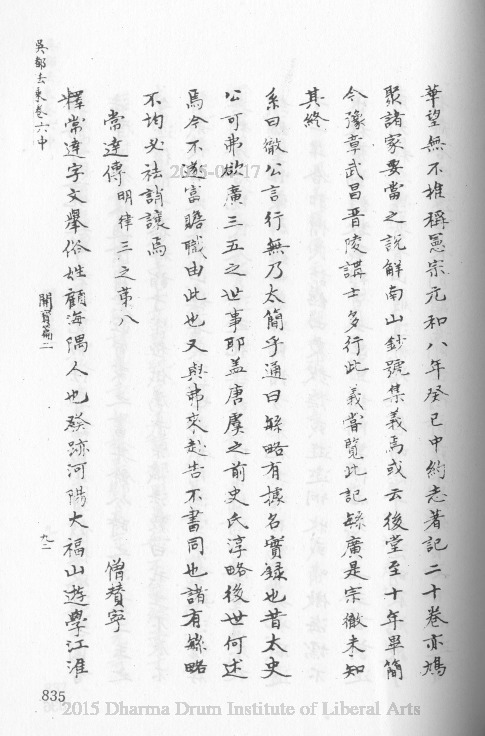 華望無不推稱憲宗元和八年癸巳中約志著記二十卷亦鳩
聚諸家要當之說解南山鈔號集義焉或云後堂至十年畢簡
今豫章武昌晉陵講士多行此義嘗覽此記繁廣是宗徹未知
其終
系曰徹公言行無乃太簡乎通曰繁略有據名實錄也昔太史
公可弗欲廣三五之世事耶蓋唐虞之前史氏淳略後世何述
焉今不遂富贍職由此也又與弗來赴告不書同也諸有繁略
不均必祛誚讓焉
常達傳明律三之第八
僧贊寧
釋常達字文舉俗姓顧海隅人也發跡河陽大福山遊學江淮
吳都法乘卷六中
開質篇二
九二
835
2015 Dharma Drum Institute of Liberal Arts